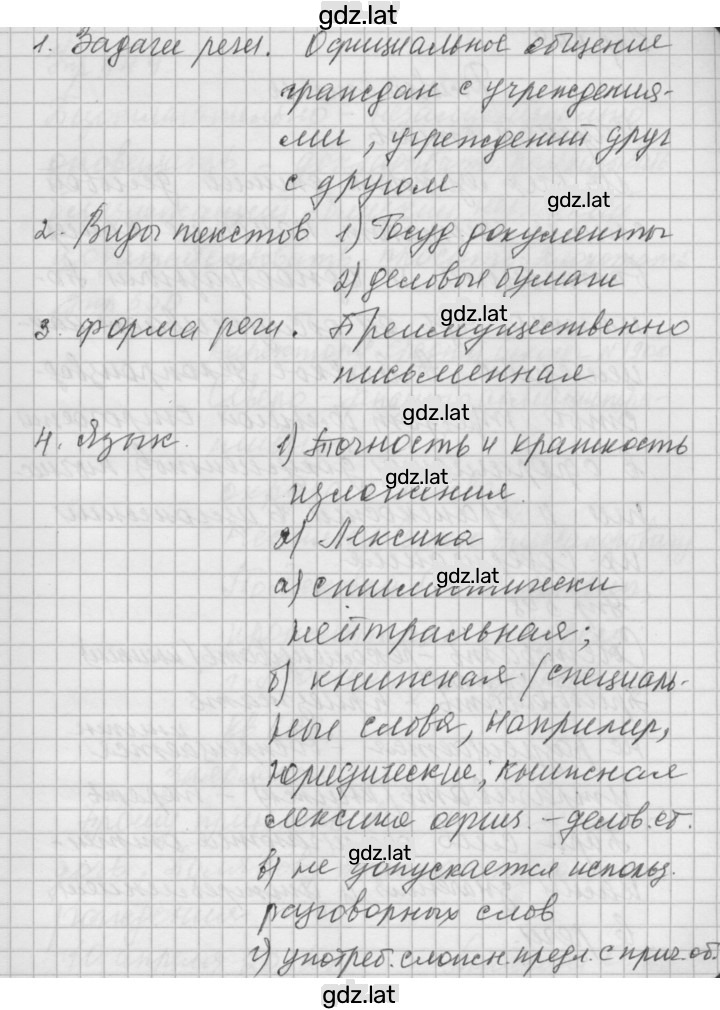 gdz.lat
1. Задачи речи. Официальное общение
граждан с учреждения-
ми, учреждений друг
с другом
gdz.lat
2. Виды текстов 1) Госуд документы
2) деловые бумаги
gdz.lat
3. Форма речи. Преимущественно
письменная
gdz.lat
4. Язык. 1) Точность и краткость
gdz.lat
изложения.
2) Лексика
gdz.lat
а) стилистически
нейтральная;
б) книжная (специаль-
ные слова, например,
юридические; книжная
лексика офиц.-делов.ст.
gdz.lat
в) не допускается использ.
разговорных слов
г) употреб. сложн. предл. с прич. об.
gdz.lat